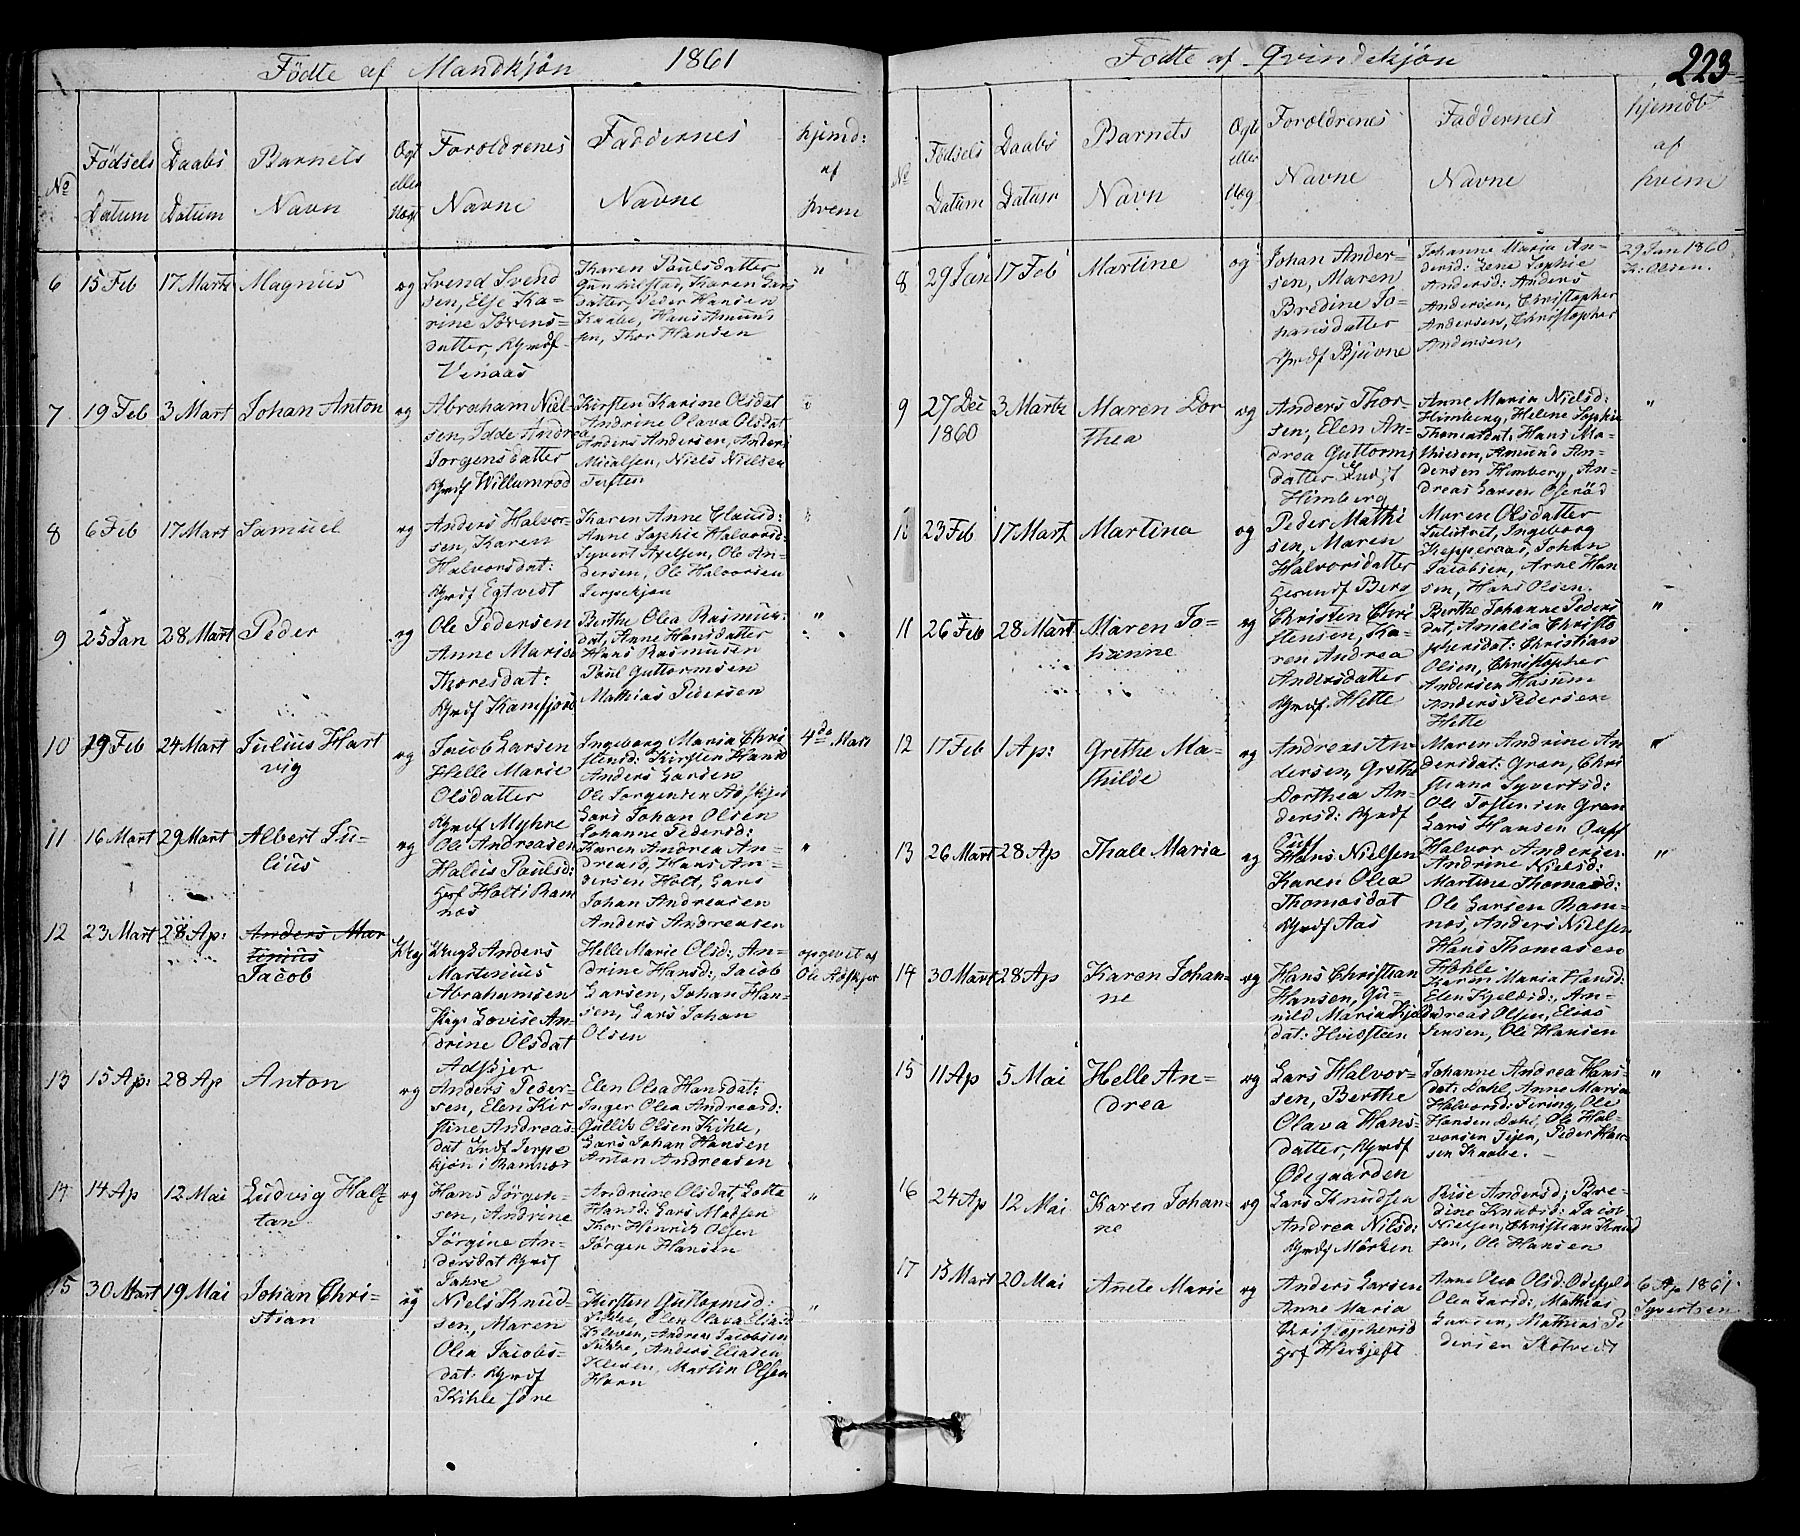 Fødte af Mandkjøn 1861
No
Fødsels Datum
Daabs Datum
Barnets Navn
Ægt eller Uægt
Forældrenes Navne
Faddernes Navne
hjemd: af hvem
6 15 Feb 17 Marts Magnus
Svend Svend
sen, Else Ka-
rine Sørens-
datter,
Vinaas
Karen Paulsdatter
Karen Lars
datter, Peder Hansen
Kaabe, Hans Amund
sen, Thor Hansen
"
7 19 Feb 3 Mart Johan Anton
Abraham Niel-
sen, Idde Andrea
Jørgensdatter
Willumrød
Kirsten Karine Olsdat
Andrine Olava Olsdat
Anders Andersen, Anders
Micalsen, Niels Nielsen
8 6 Feb 17 Mart Samuel
Anders Halvor-
sen, Karen
Halvorsdat:
Egtvedt
Karen Anne Clausd:
Anne Sophie Halvorsd:
Syvert Axelsen, Ole An-
dersen, Ole Halvorsen
9 25 Jan 28 Mart Peder
Ole Pedersen
Anne Marie
Thoresdat:
Kamfjord
Berthe Olea Rasmus-
dat, Anne Hansdatter
Hans Rasmusen
Paul Guttormsen
Mathias Pedersen
"
10 19 Feb 24 Mart Julius Hart
vig
Jacob Larsen
Helle Marie
Olsdatter
Myhre
Ingeborg Maria Chri
stensd: Kirsten Hansd
Anders Larsen
Ole Jorgensen Adskjer
Lars Johan Olsen
4de Mars
11 16 Mart 29 Mart Albert Ju-
lius
Ole Andreasen
Haldis Paulsd:
Holt i Ram
næs
Johanne Pedersd:
Karen Andrea An-
dreasd, Hans An-
dersen Holt, Lars
Johan Andreasen
Anders Andreasen
"
12 23 Mart 28 Ap: Anders Mar
tinius
Jacob
Anders
Martinius
Abrahamsen
Lovise An-
drine Olsdat
Adskjer
Helle Marie Olsd:, An-
drine Hansd:, Jacob
Larsen, Johan Han-
sen, Lars Johan
Olsen
opgevet af
Ole Adskjer
13 15 Ap: 28 Ap Anton
Anders Peder-
sen, Elen Kir
stine Andreas-
dat
i Ramnæs
Elen Olea Hansdat:
Inger Olea Andreasd:
Gullik Olsen Kihle,
Lars Johan Hansen
Anton Andreasen
14 14 Ap 12 Mai Ludvig Half-
tan
Hans Jørgen-
sen, Andrine
Jørgine An-
dersdat
Jahre
Andrine Olsdat, Lotta
Hansd: Lars Madsen
Thor Henrik Olsen
Jørgen Hansen
"
15 30 Mart 19 Mai Johan Chri-
stian
Niels Knud-
sen, Maren
Olea Jacobs-
dat:
Kihle
Kirsten Guttormsd:
Elen Olava Eliasd
Kleven, Andrea Jacobsen
Anders Eliasen
Kleven, Martin Olsen
Horn
"
Fødte af Qvindekjøn 223
No
Fødsels Datum
Daabs Datum
Barnets Navn
Ægte eller Uæg
Forældrenes Navne
Faddernes Navne
hjemdt af hvem
8 29 Jan 17 Feb Martine
Johan Ander-
sen, Maren
Bredine Jo-
hansdatter
Bjuvne
Johanne Maria An-
dersd: Lene Sophie
Andersd: Anders
Andersen, Christopher
Andersen, Christopher
Andersen,
29 Jan 1860
Olsen.
9 27 Dec 3 Marts Maren Dor
1860 thea
Anders Thor-
sen, Elen An-
drea Guttorms
datter
Himberg
Anne Maria Nielsd:
Himberg, Helene Sophie
Thomasdat, Hans Ma-
thisen, Amund An-
dersen Himberg, An-
dreas Larsen
"
10 23 Feb 17 Mart Martina
Peder Mathi
sen, Maren
Halvorsdatter
Berg
Maren Olsdatter
Ingeborg
Johan
Jacobsen, Arne Han
sen, Hans Olsen.
11 26 Feb 28 Mart Maren Jo-
hanne
Christen Chri
stensen, Ka-
ren Andrea
Andersdatter
Hette
Berthe Johanne Peders
dat, Amalia Christo
phersdat: Christian
Olsen, Christopher
Andersen Hasum
Anders Pedersen
Hette
"
12 17 Feb 1 Ap: Grethe Ma-
thilde
Andreas An
dersen, Grethe
Dorthea An-
dersd:
Maren Andrine An
dersdat: Gran, Chri
stiana Syvertsd:
Ole Tosten sen Gran
Lars Hansen
Halvor Andersen
"
13 26 Mart 28 Ap Thale Maria
Hans Nielsen
Karen Olea
Thomasdat
Aas
Andrine Nielsd:
Martine Thomasd:
Ole Larsen Ram-
næs, Anders Nielsen
Hans Thomasen
"
14 30 Mart 28 Ap Karen Johan-
ne
Hans Christian
Hansen, Gu-
nild Maria
dat: Hvidsteen
Karen Maria Hansd:
Elen Kjeldsd:, An-
dreas Olsen, Elias
Jensen, Ole Hansen
15 11 Ap 5 Mai Helle An-
drea
Lars Halvor-
sen, Berthe
Olava Hans-
datter,
Ødegaarden
Johanne Andrea Hans-
dat: Dahl, Anne Maria
Halvorsd: Firing, Ole
Hansen Dahl, Ole Hal-
vorsen Peder Han-
sen Kaabe.
"
16 24 Ap 12 Mai Karen Johan-
ne
Lars Knudsen
Andrea Nilsd:
Mørken
Andersd; Bre-
dine Knudsd: Jacob
Nielsen, Christian Knud
sen, Ole Hansen
17 15 Mart 20 Mai Anete Marie
Anders Larsen
Anne Maria
Christophersd
Anne Olea Olsd:
Olea Larsd:, Mathias
Larsen, Mathias Pe
dersen Skotvedt
6 Ap 1861
Syvertsen